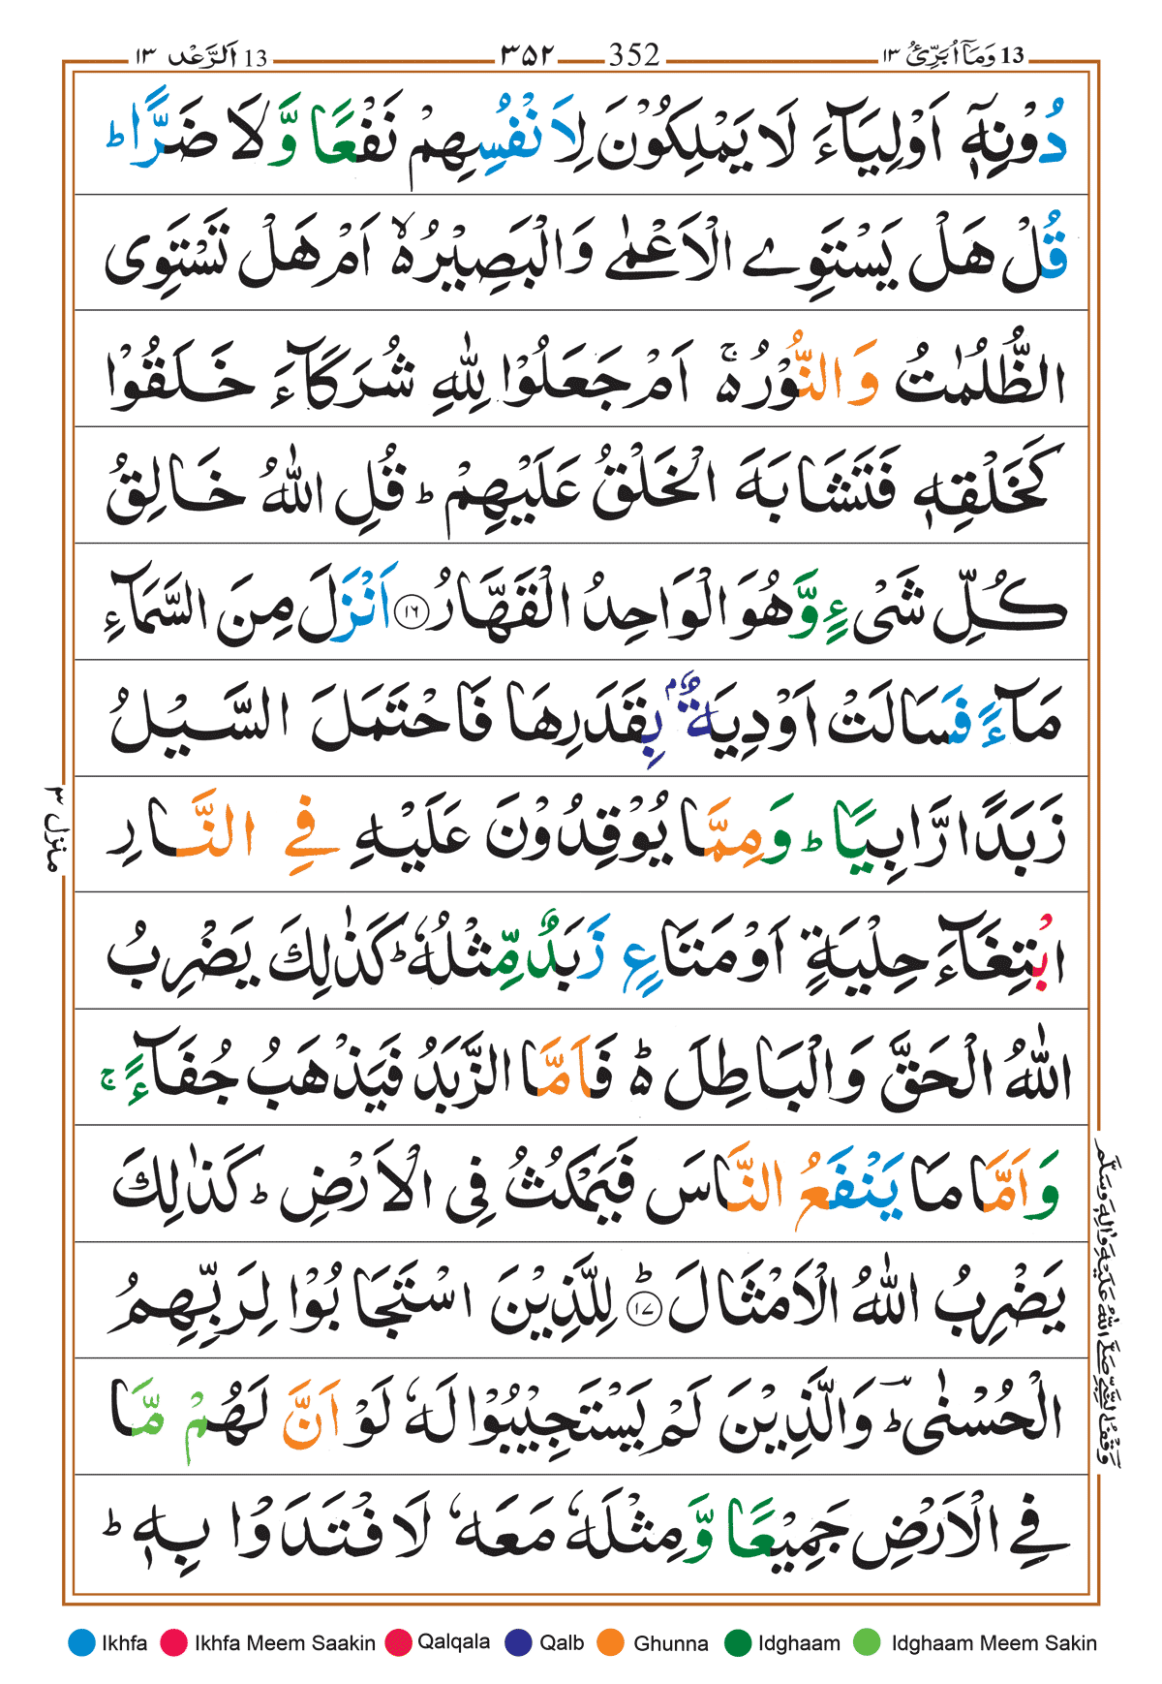 13 وَمَاۤ اُبَرِّئُ ١٣
352 ٣٥٢
13 اَلرَّعْد ١٣
دُوْنِهٖۤ اَوْلِيَآءَ لَا يَمْلِكُوْنَ لِاَنْفُسِهِمْ نَفْعًا وَّلَا ضَرًّا ؕ
قُلْ هَلْ يَسْتَوِے الْاَعْمٰى وَالْبَصِيْرُ ۙ۬ اَمْ هَلْ تَسْتَوِى
الظُّلُمٰتُ وَالنُّوْرُ ۚ۬ اَمْ جَعَلُوْا لِلّٰهِ شُرَكَآءَ خَلَقُوْا
كَخَلْقِهٖ فَتَشَابَهَ الْخَلْقُ عَلَيْهِمْ ؕ قُلِ اللّٰهُ خَالِقُ
كُلِّ شَىْءٍ وَّهُوَ الْوَاحِدُ الْقَهَّارُ ١٦ اَنْزَلَ مِنَ السَّمَآءِ
مَآءً فَسَالَتْ اَوْدِيَةٌۢ بِقَدَرِهَا فَاحْتَمَلَ السَّيْلُ
زَبَدًا رَّابِيًا ؕ وَمِمَّا يُوْقِدُوْنَ عَلَيْهِ فِے النَّارِ
ابْتِغَآءَ حِلْيَةٍ اَوْ مَتَاعٍ زَبَدٌ مِّثْلُهٗ ؕ كَذٰلِكَ يَضْرِبُ
اللّٰهُ الْحَقَّ وَالْبَاطِلَ ۬ؕ فَاَمَّا الزَّبَدُ فَيَذْهَبُ جُفَآءً ۚ
وَاَمَّا مَا يَنْفَعُ النَّاسَ فَيَمْكُثُ فِى الْاَرْضِ ؕ كَذٰلِكَ
يَضْرِبُ اللّٰهُ الْاَمْثَالَ ؕ ١٧ لِلَّذِيْنَ اسْتَجَابُوْا لِرَبِّهِمُ
الْحُسْنٰى ؔؕ وَالَّذِيْنَ لَمْ يَسْتَجِيْبُوْا لَهٗ لَوْ اَنَّ لَهُمْ مَّا
فِے الْاَرْضِ جَمِيْعًا وَّمِثْلَهٗ مَعَهٗ لَافْتَدَوْا بِهٖ ؕ
منزل ٣
وَقْفُ النَّبِيِّ صَلَّى اللّٰهُ عَلَيْهِ وَاٰلِهٖ وَسَلَّمَ
Ikhfa Ikhfa Meem Saakin Qalqala Qalb Ghunna Idghaam Idghaam Meem Sakin